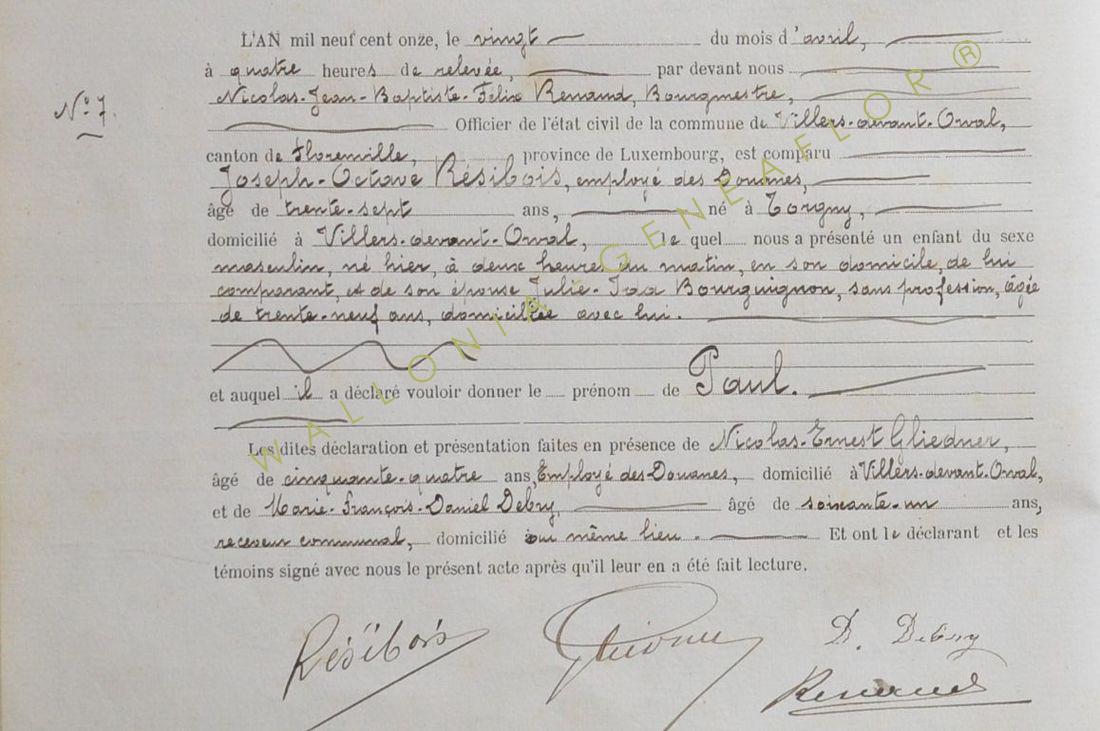 L'AN mil neuf cent onze, le vingt du mois d'avril,
à quatre heures de relevée, par devant nous
Nicolas-Jean-Baptiste-Félix Renaud, Bourgmestre,
N° 7.
Officier de l'état civil de la commune de Villers-devant-Orval,
canton de Florenville, province de Luxembourg, est comparu
Joseph-Octave Résibois, employé des Douanes,
âgé de trente-sept ans, né à Torgny,
domicilié à Villers-devant-Orval, le quel nous a présenté un enfant du sexe
masculin, né hier, à deux heures du matin, en son domicile, de lui
comparant, et de son épouse Julie-Ida Bourguignon, sans profession, âgée
de trente-neuf ans, domiciliée avec lui.
et auquel il a déclaré vouloir donner le prénom de Paul.
Les dites déclaration et présentation faites en présence de Nicolas-Ernest Gliedner,
âgé de cinquante-quatre ans, Employé des Douanes, domicilié à Villers-devant-Orval,
et de Marie-François-Daniel Debry, âgé de soixante-un ans,
receveur communal, domicilié au même lieu. Et ont le déclarant et les
témoins signé avec nous le présent acte après qu'il leur en a été fait lecture.
Résibois
D. Debry
Renaud
WALLONIA-GENEAFLOR ®